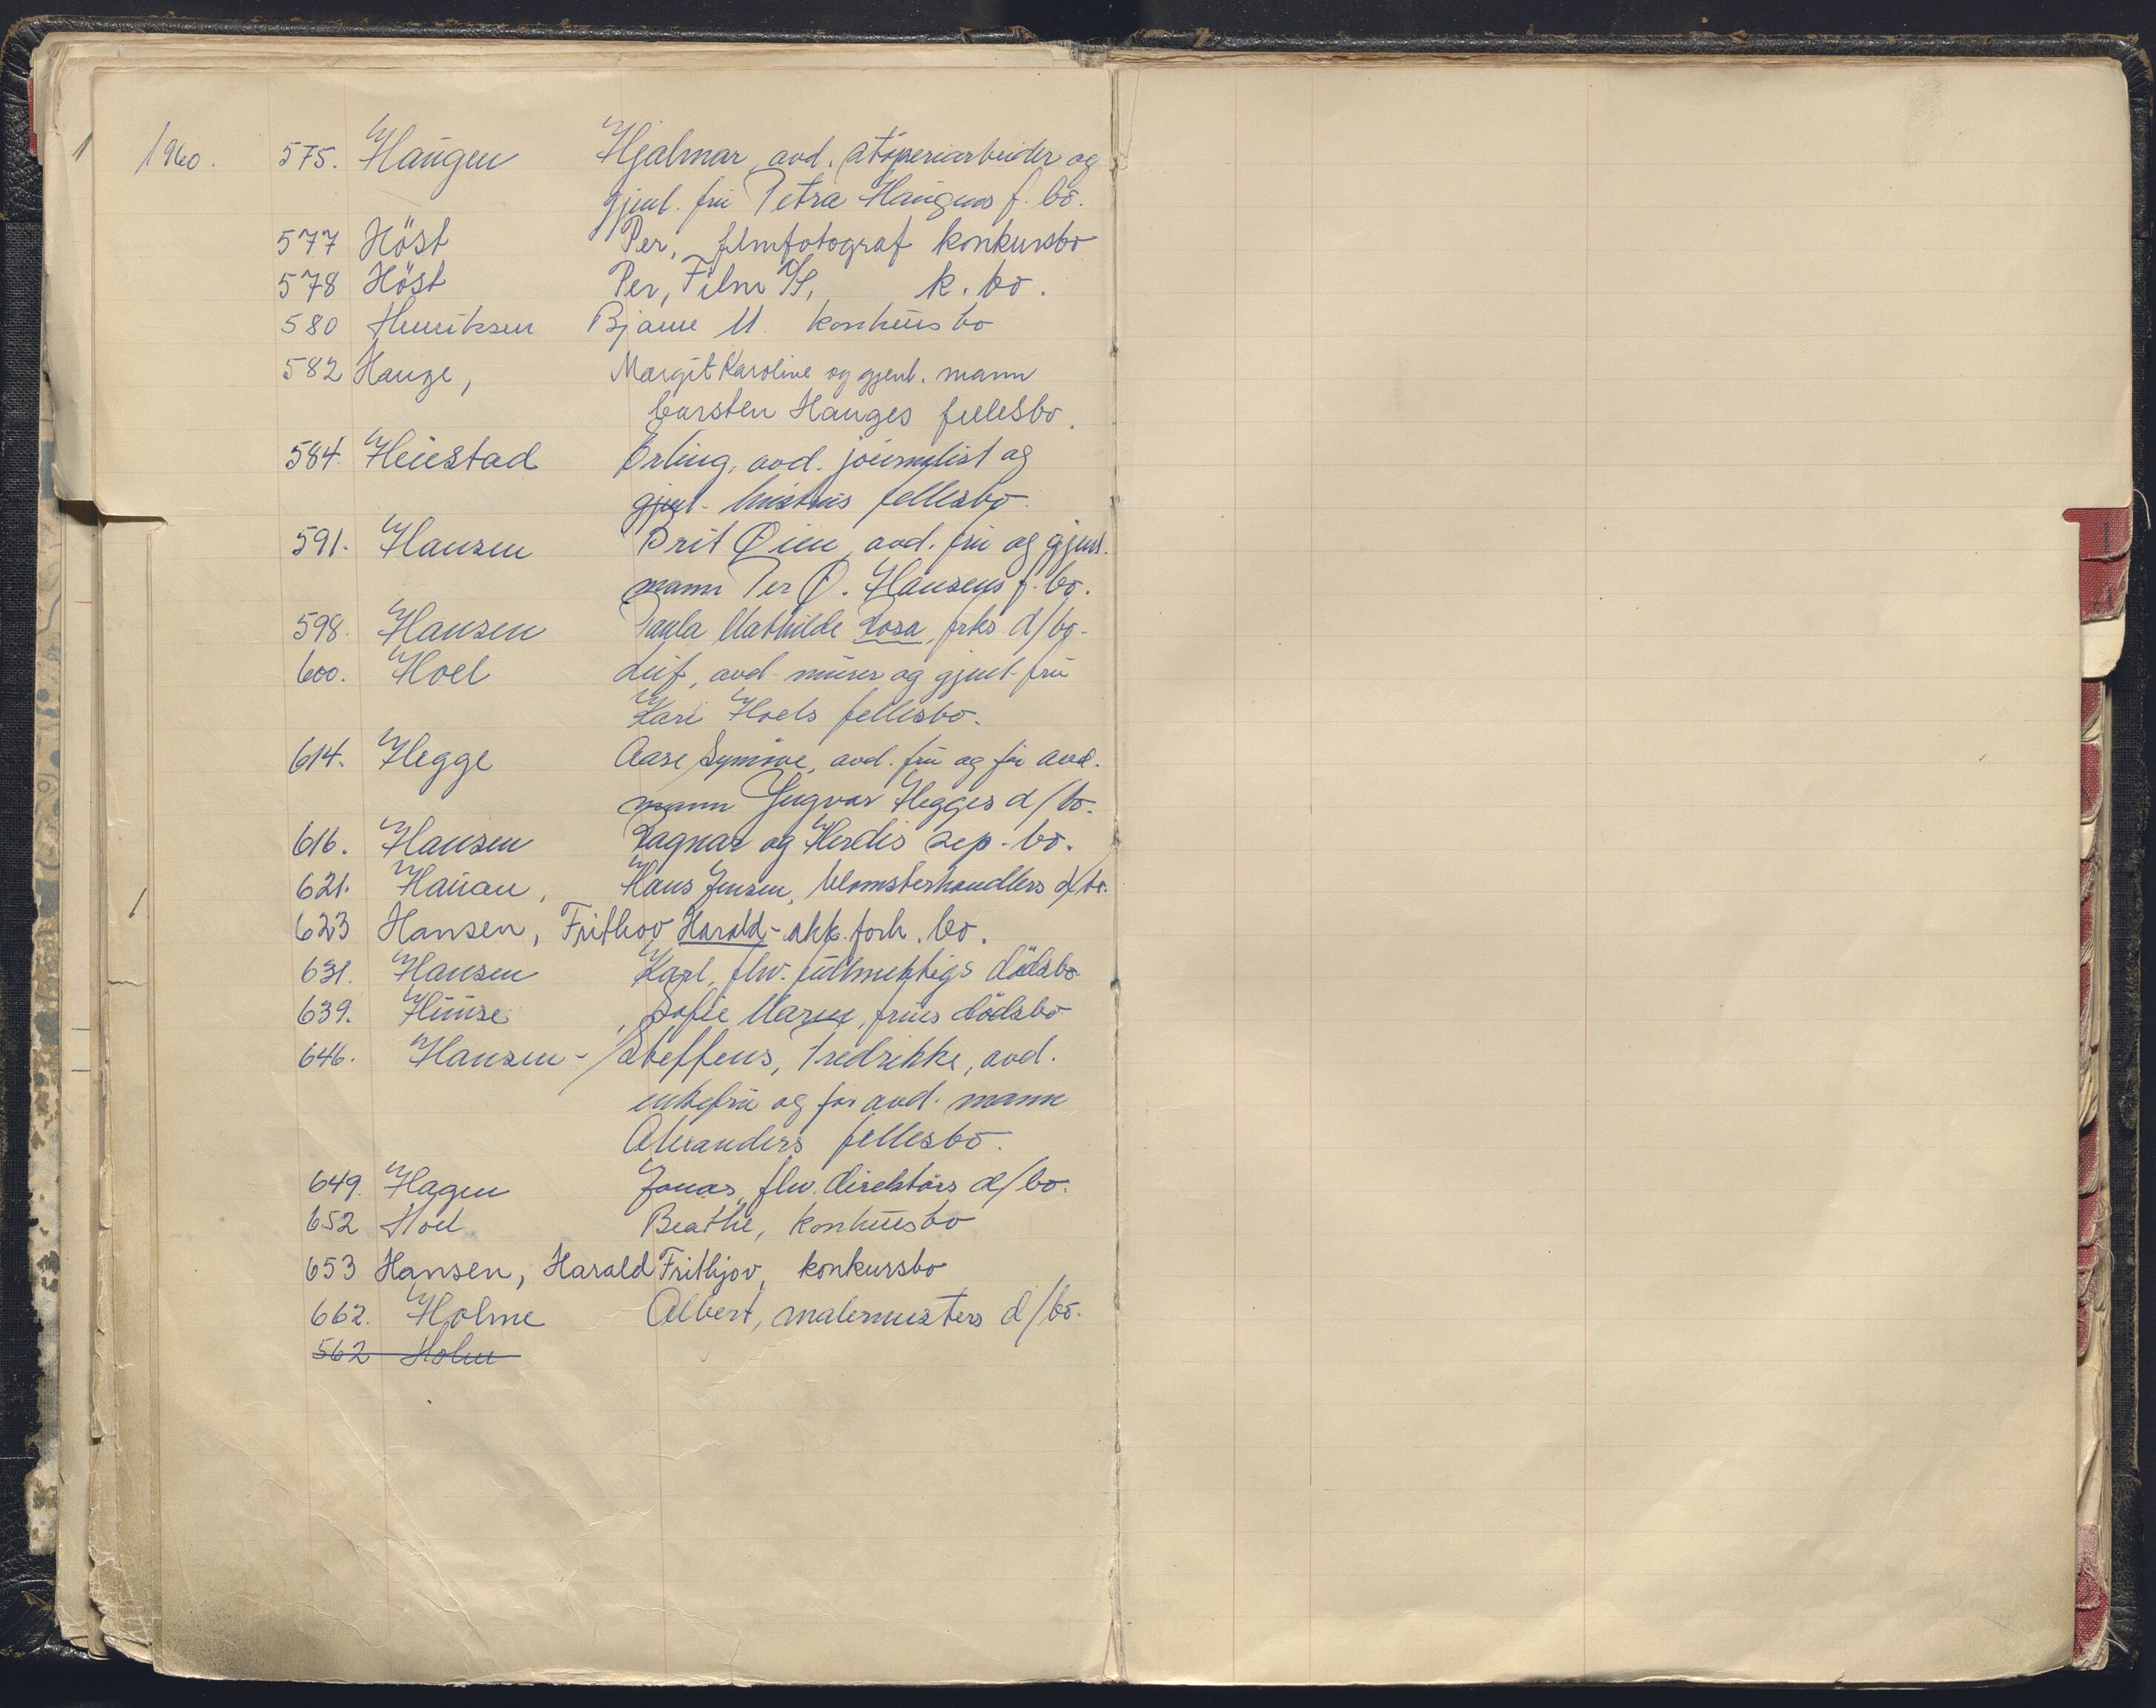 1960. 575. Haugen Hjalmar, avd. støperiarbeider og
gjenl. fru Petra Haugens f. bo.
577 Höst Per, filmfotograf konkursbo
578 Höst Per, Film A/S, k. bo.
580 Henriksen Bjarne M. konkursbo
582 Hauge, Margit Karoline og gjenl. mann
Carsten Hauges fellesbo.
584. Heiestad Erling, avd. journalist og
gjenl. hustrus fellesbo.
591. Hansen Brit Øien, avd. fru og gjenl.
mann Per Ø. Hansens f. bo.
598. Hansen Paula Mathilde Rosa, frks d/bo.
600. Hoel Leif, avd. murer og gjenl. fru
Kari Hoels fellesbo.
614. Hegge Aase Synnøve, avd. fru og før avd.
mann Yngvar Hegges d/bo.
616. Hansen Ragnar og Herdis sep. bo.
621. Hauan, Hans Jensen, blomsterhandlers d/bo.
623 Hansen, Frithjov Harald - akk. forh. bo.
631. Hansen Karl, fhv. fullmektigs dødsbo
639. Huuse, Sofie Marie, frues dødsbo
646. Hansen - Steffens, Fredrikke, avd.
enkefru og før avd. mann
Alexanders fellesbo.
649. Hagen Jonas, fhv. direktørs d/bo.
652 Hoel Beathe, konkursbo
653 Hansen, Harald Frithjov, konkursbo
662. Holme Albert, malermesters d/bo.
562 Holm